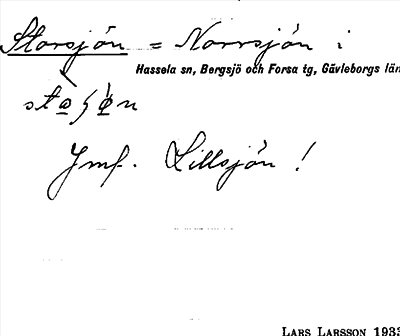 Storsjön = Norrsjön i
Hassela sn, Bergsjö och Forsa tg, Gävleborgs län
Jmf. Lillsjön !
LARS LARSSON 1933